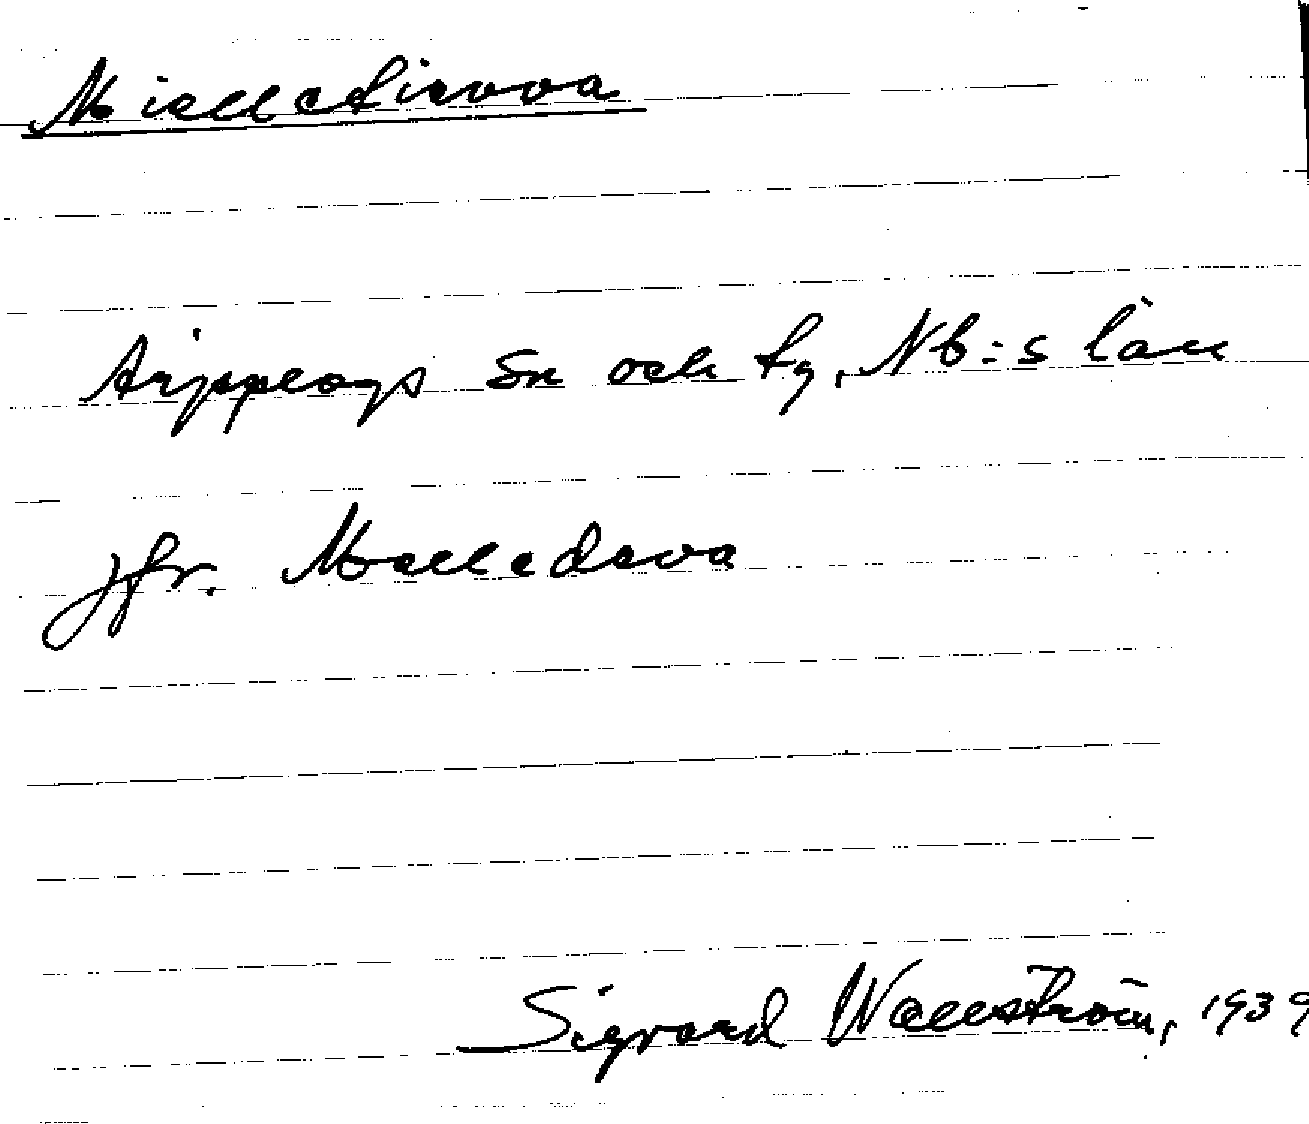 Miellatievva
Arjeplogs sn och tg, Nb:s län
Jfr. Malledava
Sigvard Wallström, 1939